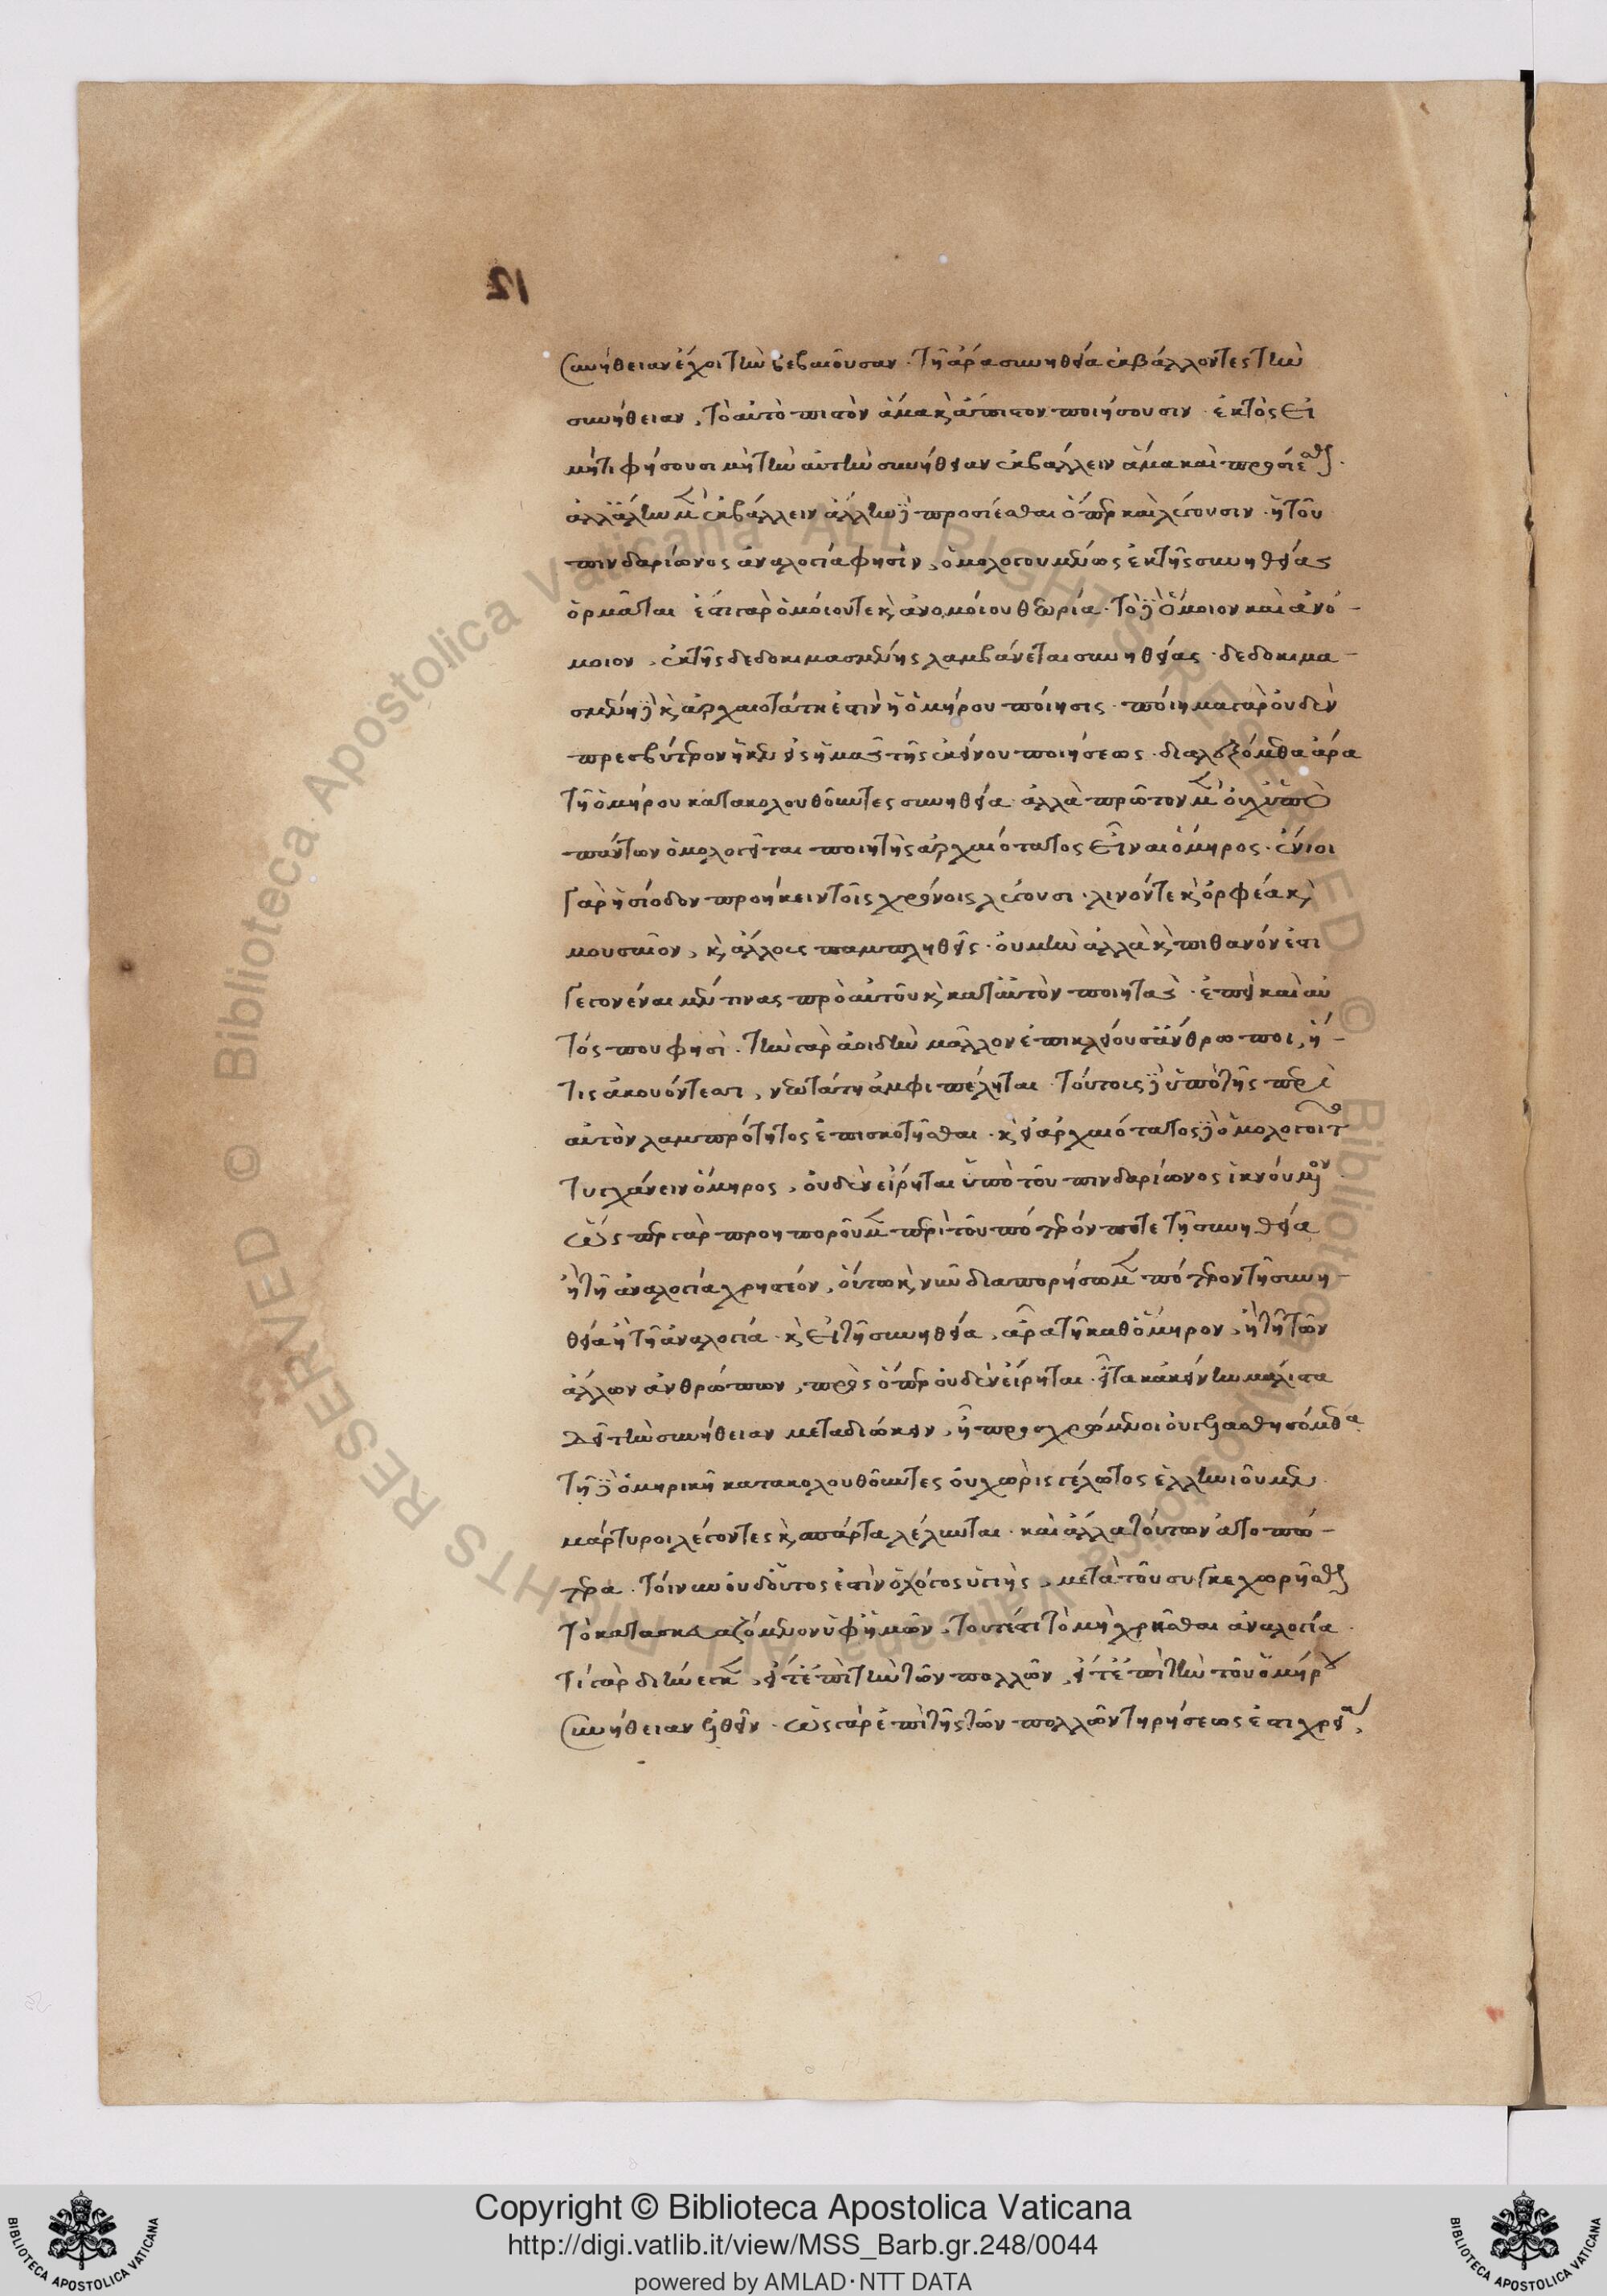 12
συνήθειαν ἔχοι τὴν βεβαιοῦσαν · τῇ ἄρα συνηθεία ἐκβάλλοντες τὴν
συνήθειαν, τὸ αὐτὸ πιστὸν ἅμα κ̀ ἄπιστον ποιήσουσιν · ἐκτὸς εἰ
μήτι φήσουσι μὴ τὴν αὐτὴν συνήθειαν ἐκβάλλειν ἅμα καὶ προσίεσθαι ·
ἀλλ' ἄλλην μ̀ ἐκβάλλειν ἄλλην δὲ προσίεσθαι ὅπερ καὶ λέγουσιν · ἡ τοῦ
πινδαρίωνος ἀναλογία φησὶν, ὁμολογουμένως ἐκ τῆς συνηθείας
ὁρμᾶται ἔστι γὰρ ὁμοίου τε κ̀ ἀνομοίου θεωρία · τὸ δὲ ὅμοιον καὶ ἀνό-
μοιον, ἐκ τῆς δεδοκιμασμένης λαμβάνεται συνηθείας · δεδοκιμα-
σμένη δὲ κ̀ ἀρχαιοτάτη ἐστὶν ἡ ὁμήρου ποίησις · ποίημα γὰρ οὐδὲν
πρεσβύτερον ἧκεν εἰς ἡμᾶς τῆς ἐκείνου ποιήσεως · διαλεξόμεθα ἄρα
τῇ ὁμήρου κατακολουθοῦντες συνηθεία · ἀλλὰ πρῶτον μ̀ οὐχ ὑπὸ
πάντων ὁμολογεῖται ποιητὴς ἀρχαιότατος εἶναι ὅμηρος · ἔνιοι
γὰρ ἡσίοδον προήκειν τοῖς χρόνοις λέγουσι · λινόν τε κ̀ ὀρφέα κ̀
μουσαῖον, κ̀ ἄλλους παμπληθεῖς · οὐ μὴν ἀλλὰ κ̀ πιθανόν ἐστι
γεγονέναι μέν τινας πρὸ αὐτοῦ κ̀ κατ' αὐτὸν ποιητὰς · ἐπεὶ καὶ αὐ
τός που φησὶ · τὴν γὰρ ἀοιδὴν μᾶλλον ἐπικλείουσ' ἄνθρωποι, ἥ-
τις ἀκουόντεσσι, νεωτάτη ἀμφιπέληται · τούτοις δὲ ὑπὸ τῆς περὶ
αὐτὸν λαμπρότητος ἐπισκοτεῖσθαι · κ̀ εἰ ἀρχαιότατος δὲ ὁμολογοῖτο
τυγχάνειν ὅμηρος, οὐδὲν εἴρηται ὑπὸ τοῦ πινδαρίωνος ἱκνούμενον ·
ὥσπερ γὰρ προηποροῦμεν περὶ τοῦ πότερόν ποτε τῇ συνηθεία
ἢ τῇ ἀναλογία χρηστέον, οὕτω κ̀ νῦν διαπορήσομεν πότερον τῇ συνη-
θεία ἢ τῇ ἀναλογία · κ̀ εἰ τῇ συνηθεία, ἆρα τῇ καθ' ὅμηρον, ἢ τῇ τῶν
ἄλλων ἀνθρώπων, πρὸς ὅπερ οὐδὲν εἴρηται · εἶτα κἀκείνην μάλιστα
δεῖ τὴν συνήθειαν μεταδιώκειν, ᾗ προσχρώμενοι οὐ γελασθησόμεθα
τῇ δὲ ὁμηρικῇ κατακολουθοῦντες οὐ χωρὶς γέλωτος ἑλληνιοῦμεν
μάρτυροι λέγοντες κ̀ σπάρτα λέλυνται · καὶ ἄλλα τούτων ἀτοπώ-
τερα · τοίνυν οὐδ' οὗτος ἐστὶν ὁ λόγος ὑγιὴς, μετὰ τοῦ συγκεχωρῆσθαι
τὸ κατασκευαζόμενον ὑφ' ἡμῶν, τουτέστι τὸ μὴ χρῆσθαι ἀναλογία ·
τί γὰρ διήνεγκεν, εἴτ' ἐπὶ τὴν τῶν πολλῶν, εἴτ' ἐπὶ τὴν τοῦ ὁμήρου
συνήθειαν ἐλθεῖν · ὡς γὰρ ἐπὶ τῆς τῶν πολλῶν τηρήσεως ἐστι χρεία,
Copyright © Biblioteca Apostolica Vaticana
http://digi.vatlib.it/view/MSS_Barb.gr.248/0044
powered by AMLAD·NTT DATA